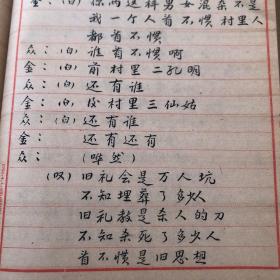 金：(白)你两这样男女混杂不是
我一个人首不惯村里人
都首不惯
众：(白)谁首不惯啊
金：(白)前村里二孔明
众：(白)还有谁
金：(白)后村里三仙姑
众：(白)还有谁
金：还有还有
众：(哗然)
(叹)旧礼会是万人坑
不知埋葬了多少人
旧礼教是杀人的刀
不知杀死了多少人
首不惯是旧思想